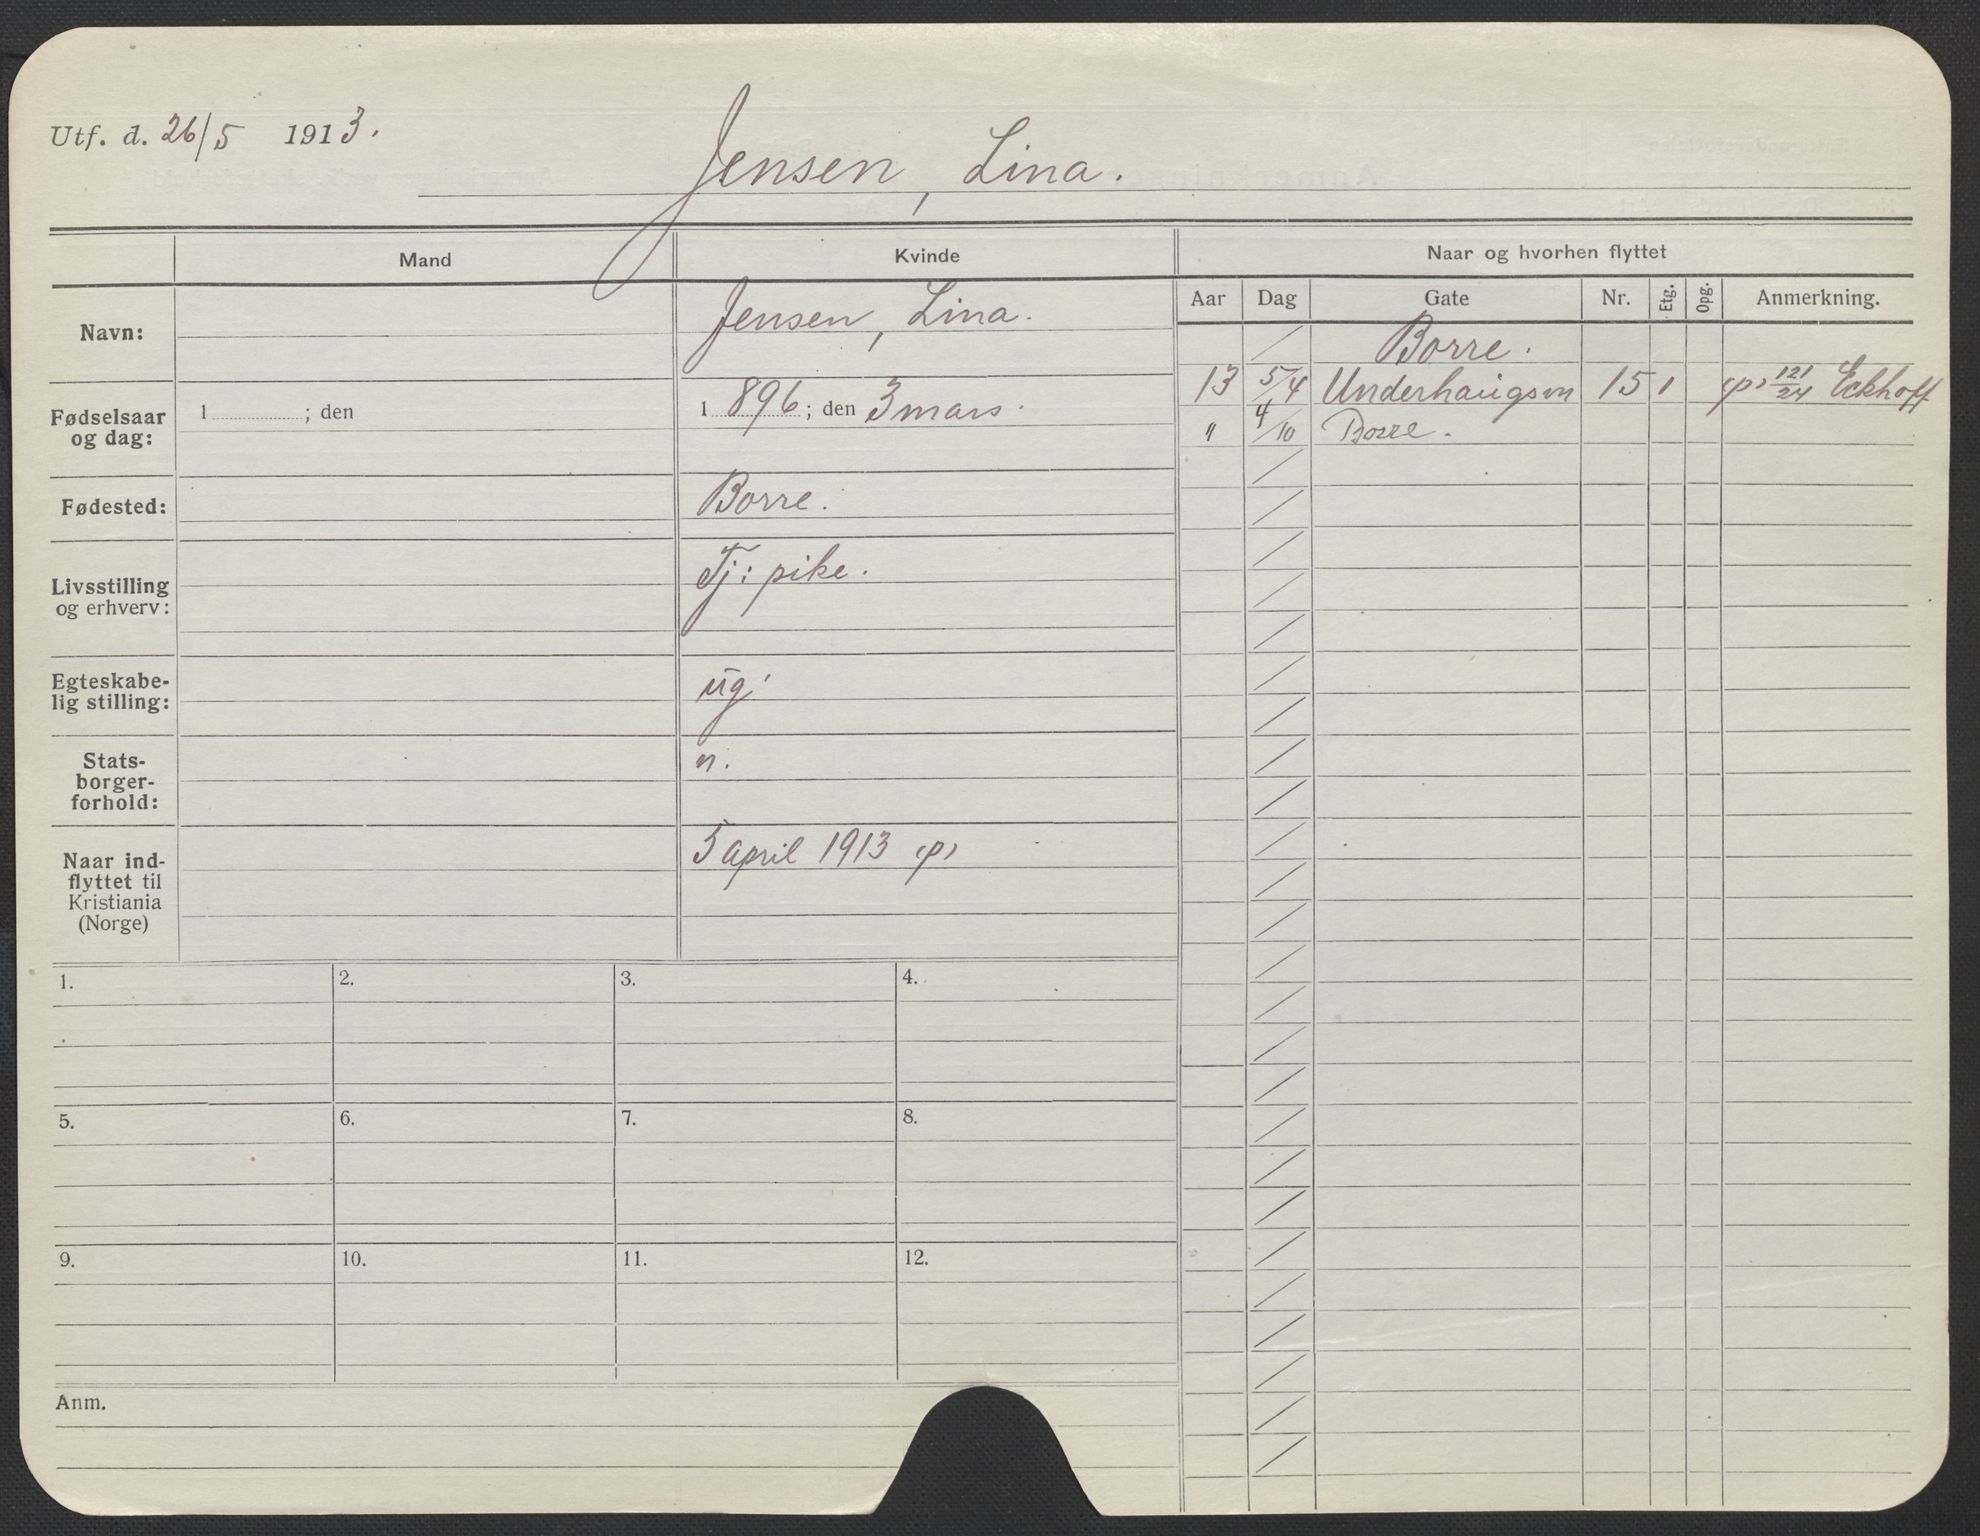 Utf. d. 26/5 1913.
Jensen, Lina.
Mand
Kvinde
Naar og hvorhen flyttet
Aar
Dag
Gate
Nr.
Etg.
Opg.
Anmerkning.
Navn:
Jensen, Lina.
Borre.
13 5/4 Underhaugsvn 15 1 (p) 121/24 Eckhoff
" 4/10 Borre.
Fødselsaar
og dag:
1 ; den
1896; den 3 mars.
Fødested:
Borre.
Livsstilling
og erhverv:
Tj: pike.
Egteskabe-
lig stilling:
ug.
Stats-
borger-
forhold:
n.
Naar ind-
flyttet til
Kristiania
(Norge)
5 april 1913 (p)
1.
2.
3.
4.
5.
6.
7.
8.
9.
10.
11.
12.
Anm.